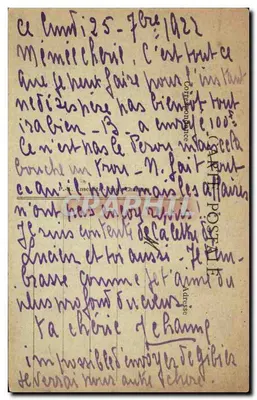 ce lundi 25 - 7bre 1922
Mémé chérie, C'est tout ce
que je peux faire pour l'instant
ne désespère pas bientôt tout
ira bien - B a envoyé 100 f
ce n'est pas le Pérou mais cela
bouche un trou - N. fait tout
ce qu'il peut mais les affaires
n'ont pas
Je suis contente de
Lucien et toi aussi - Je t'em-
brasse comme je t'aime du
plus profond du cœur
ta chérie
impossible d'envoyer de gibier
je verrai une autre chose
CARTE POSTALE
Correspondance
Adresse
CPARAMA.COM